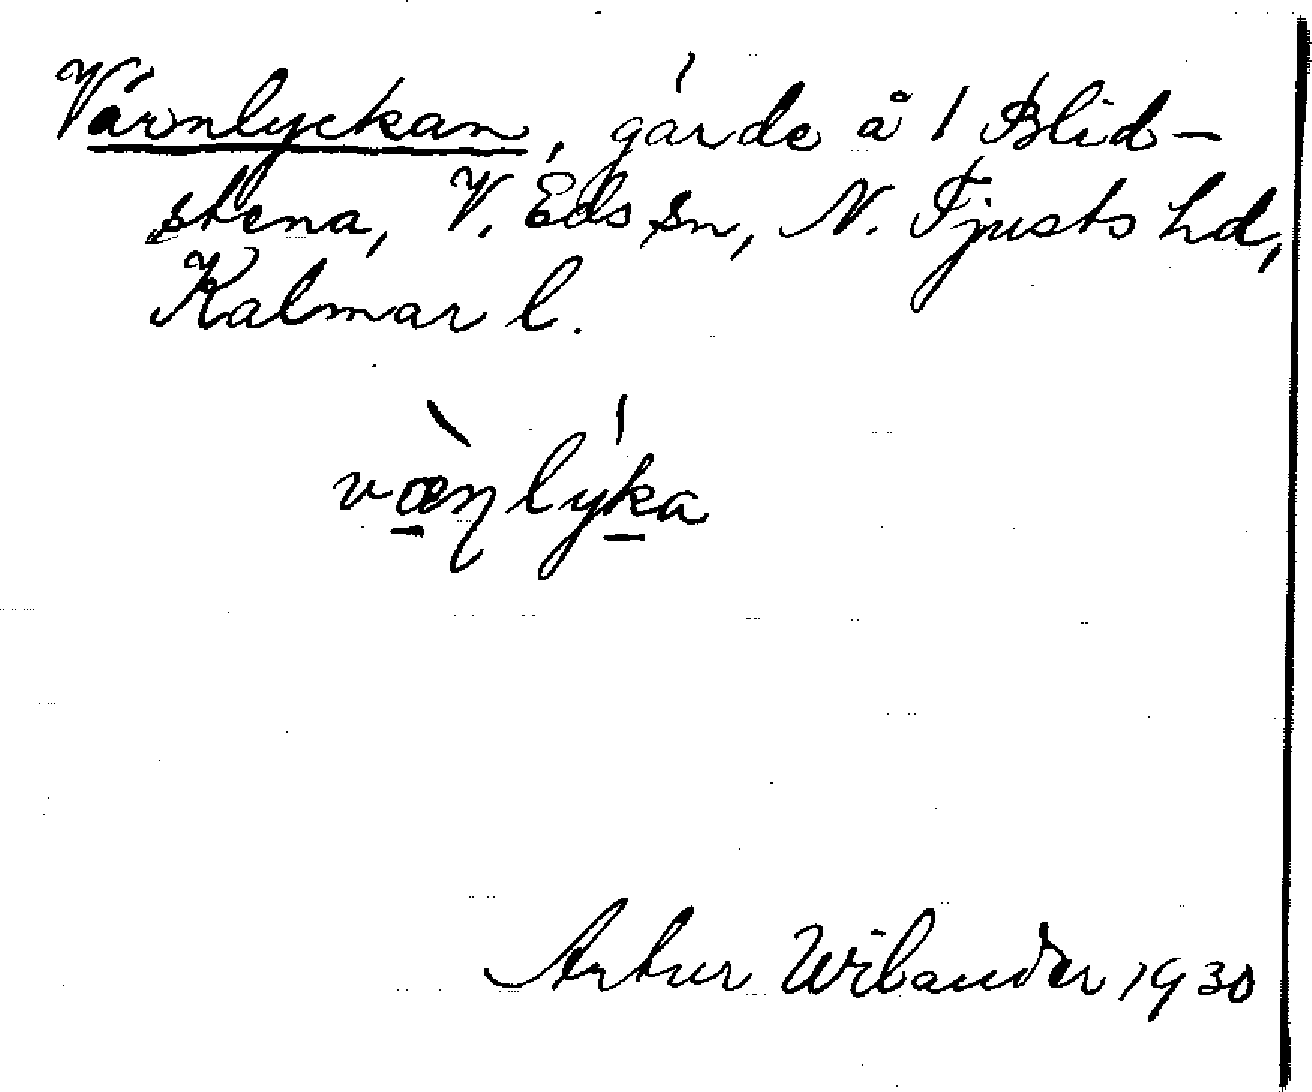 Värnlyckan, gärde å 1 Blid-
stena, V. Eds sn, N. Tjusts hd,
Kalmar l.
væ̀ɳlýka
Artur Wilander 1930